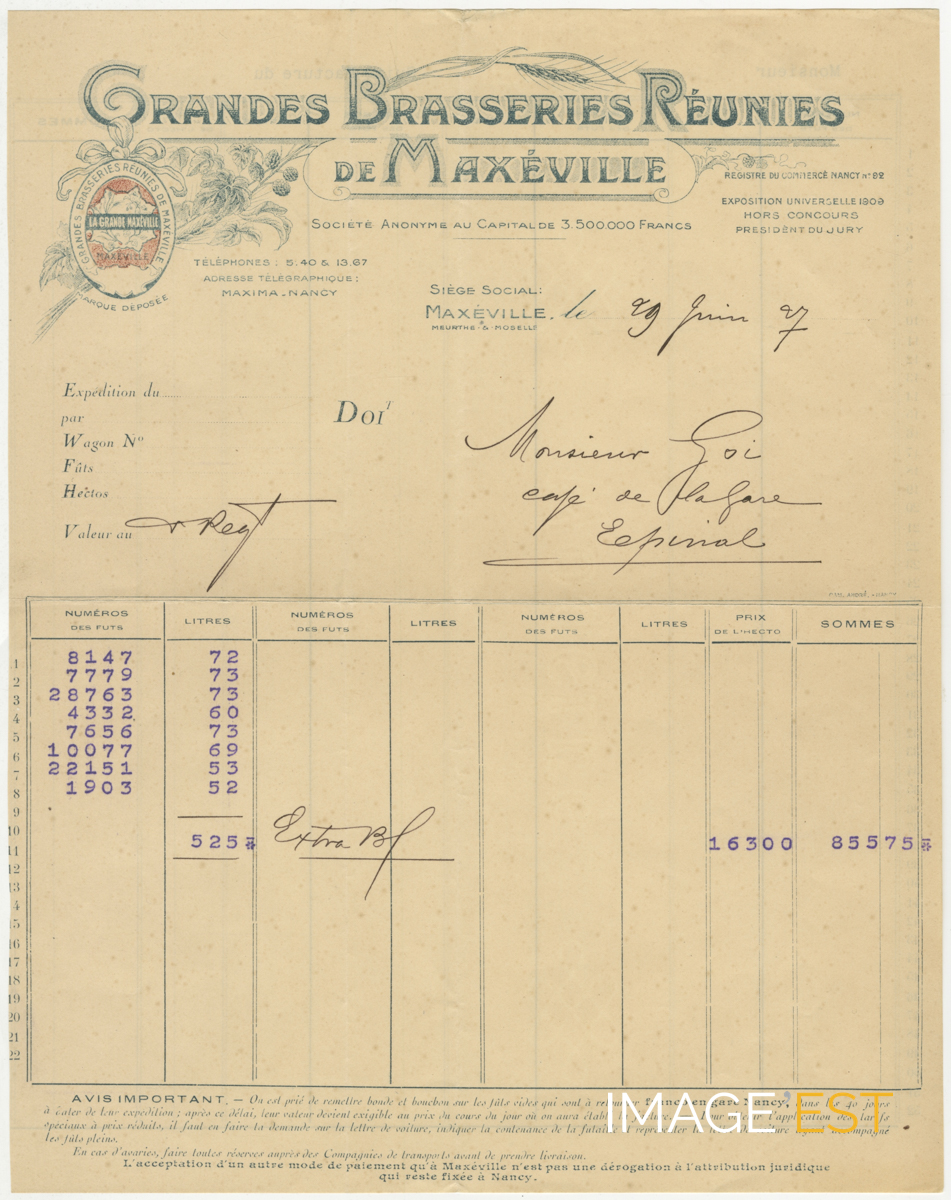 GRANDES BRASSERIES RÉUNIES
DE MAXÉVILLE
GRANDES BRASSERIES RÉUNIES DE MAXÉVILLE
LA GRANDE MAXÉVILLE
MAXÉVILLE
MARQUE DÉPOSÉE
REGISTRE DU COMMERCE NANCY Nº 92
EXPOSITION UNIVERSELLE 1909
HORS CONCOURS
PRÉSIDENT DU JURY
SOCIÉTÉ ANONYME AU CAPITAL DE 3.500.000 FRANCS
TÉLÉPHONES : 5.40 & 13.67
ADRESSE TÉLÉGRAPHIQUE :
MAXIMA-NANCY
SIÈGE SOCIAL:
MAXÉVILLE, le 29 Juin 27
MEURTHE-&-MOSELLE
Expédition du
par
Wagon Nº
Fûts
Hectos
Valeur au
DOIT
Monsieur Goi
café de la Gare
Epinal
NUMÉROS DES FUTS LITRES NUMÉROS DES FUTS LITRES NUMÉROS DES FUTS LITRES PRIX DE L'HECTO SOMMES
1 8147 72
2 7779 73
3 28763 73
4 4332 60
5 7656 73
6 10077 69
7 22151 53
8 1903 52
9
10 525* Extra 16300 85575*
11
12
13
14
15
16
17
18
19
20
21
22
AVIS IMPORTANT. — On est prié de remettre bonde et bouchon sur les fûts vides qui sont à retourner franco en gare Nancy, dans les 40 jours
à dater de leur expédition ; après ce délai, leur valeur devient exigible au prix du cours du jour où on aura établi l'application des tarifs
spéciaux à prix réduits, il faut en faire la demande sur la lettre de voiture, indiquer la contenance de la futaille et représenter ayant accompagné
les fûts pleins.
En cas d'avaries, faire toutes réserves auprès des Compagnies de transports avant de prendre livraison.
L'acceptation d'un autre mode de paiement qu'à Maxéville n'est pas une dérogation à l'attribution juridique
qui reste fixée à Nancy.
IMAGE'EST